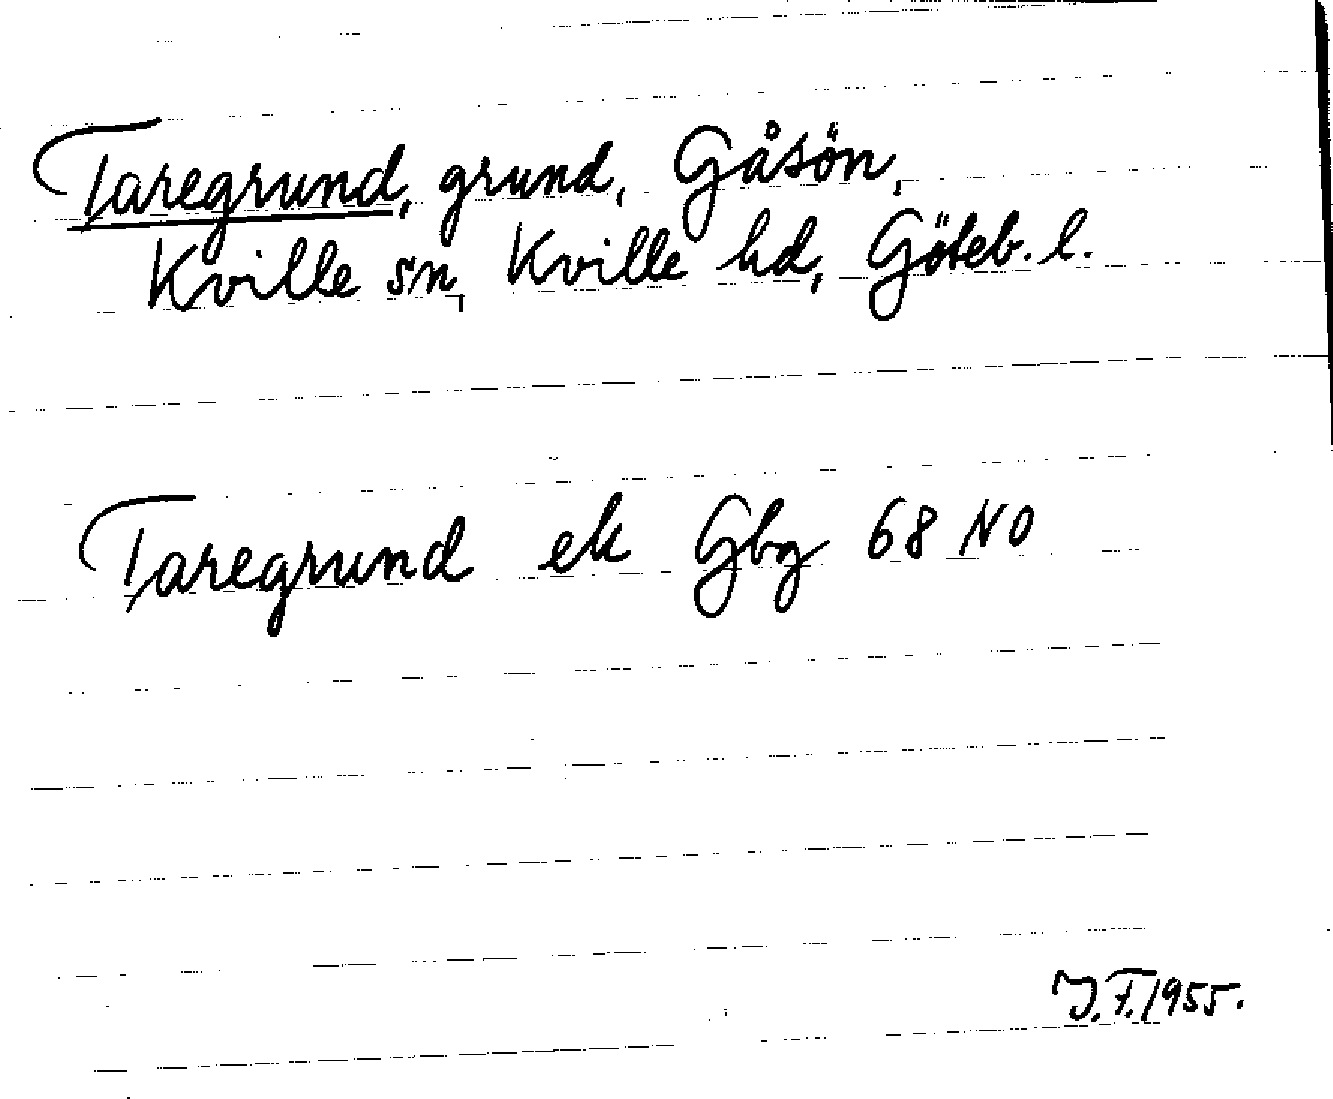 Taregrund, grund, Gåsön,
Kville sn, Kville hd, Göteb. l.
Taregrund ek Gbg 68 NO
J.F. 1955.